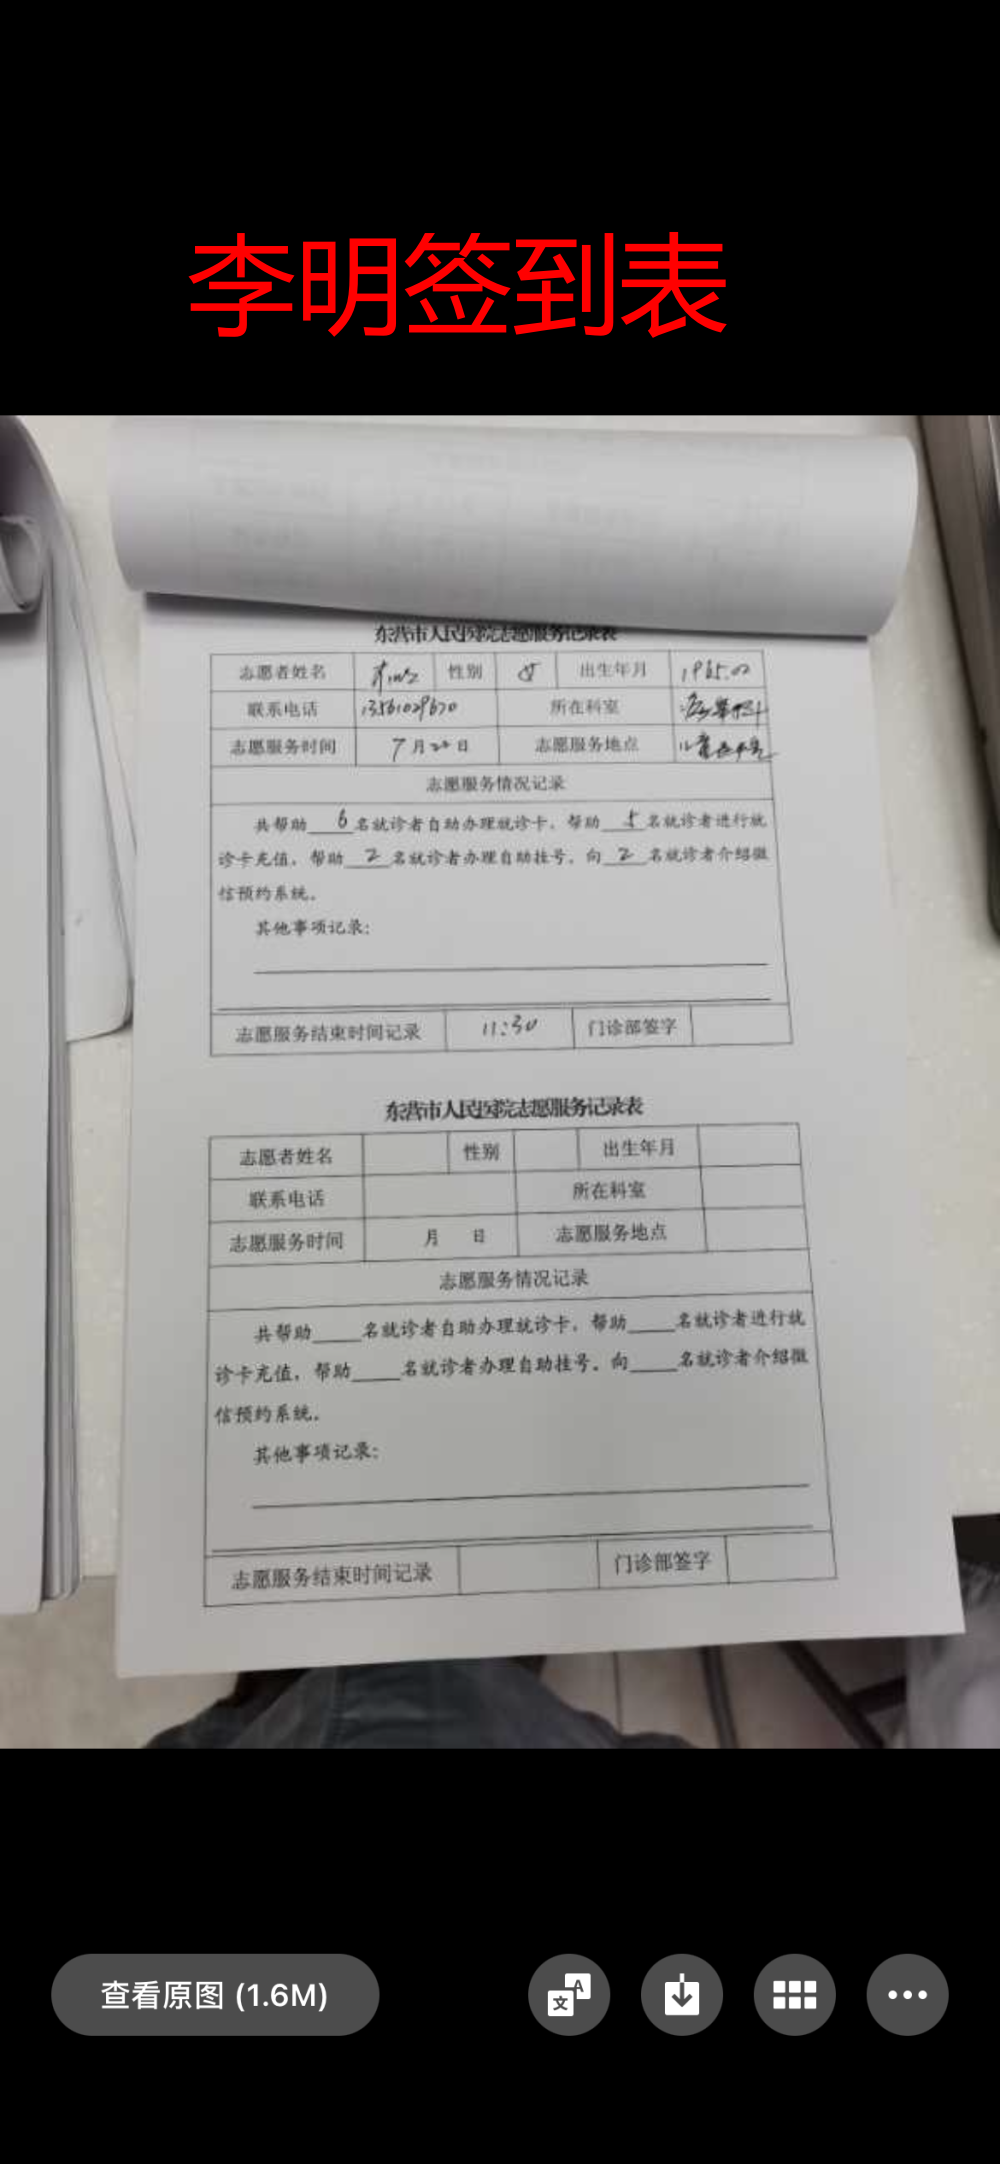 李明签到表
东营市人民医院志愿服务记录表
志愿者姓名 性别 女 出生年月 1965.02
联系电话 13561029670 所在科室
志愿服务时间 7月20日 志愿服务地点
志愿服务情况记录
共帮助6名就诊者自助办理就诊卡，帮助5名就诊者进行就
诊卡充值，帮助2名就诊者办理自助挂号，向2名就诊者介绍微
信预约系统。
其他事项记录：
志愿服务结束时间记录 11:30 门诊部签字
东营市人民医院志愿服务记录表
志愿者姓名 性别 出生年月
联系电话 所在科室
志愿服务时间 月 日 志愿服务地点
志愿服务情况记录
共帮助____名就诊者自助办理就诊卡，帮助____名就诊者进行就
诊卡充值，帮助____名就诊者办理自助挂号，向____名就诊者介绍微
信预约系统。
其他事项记录：
志愿服务结束时间记录 门诊部签字
查看原图 (1.6M)